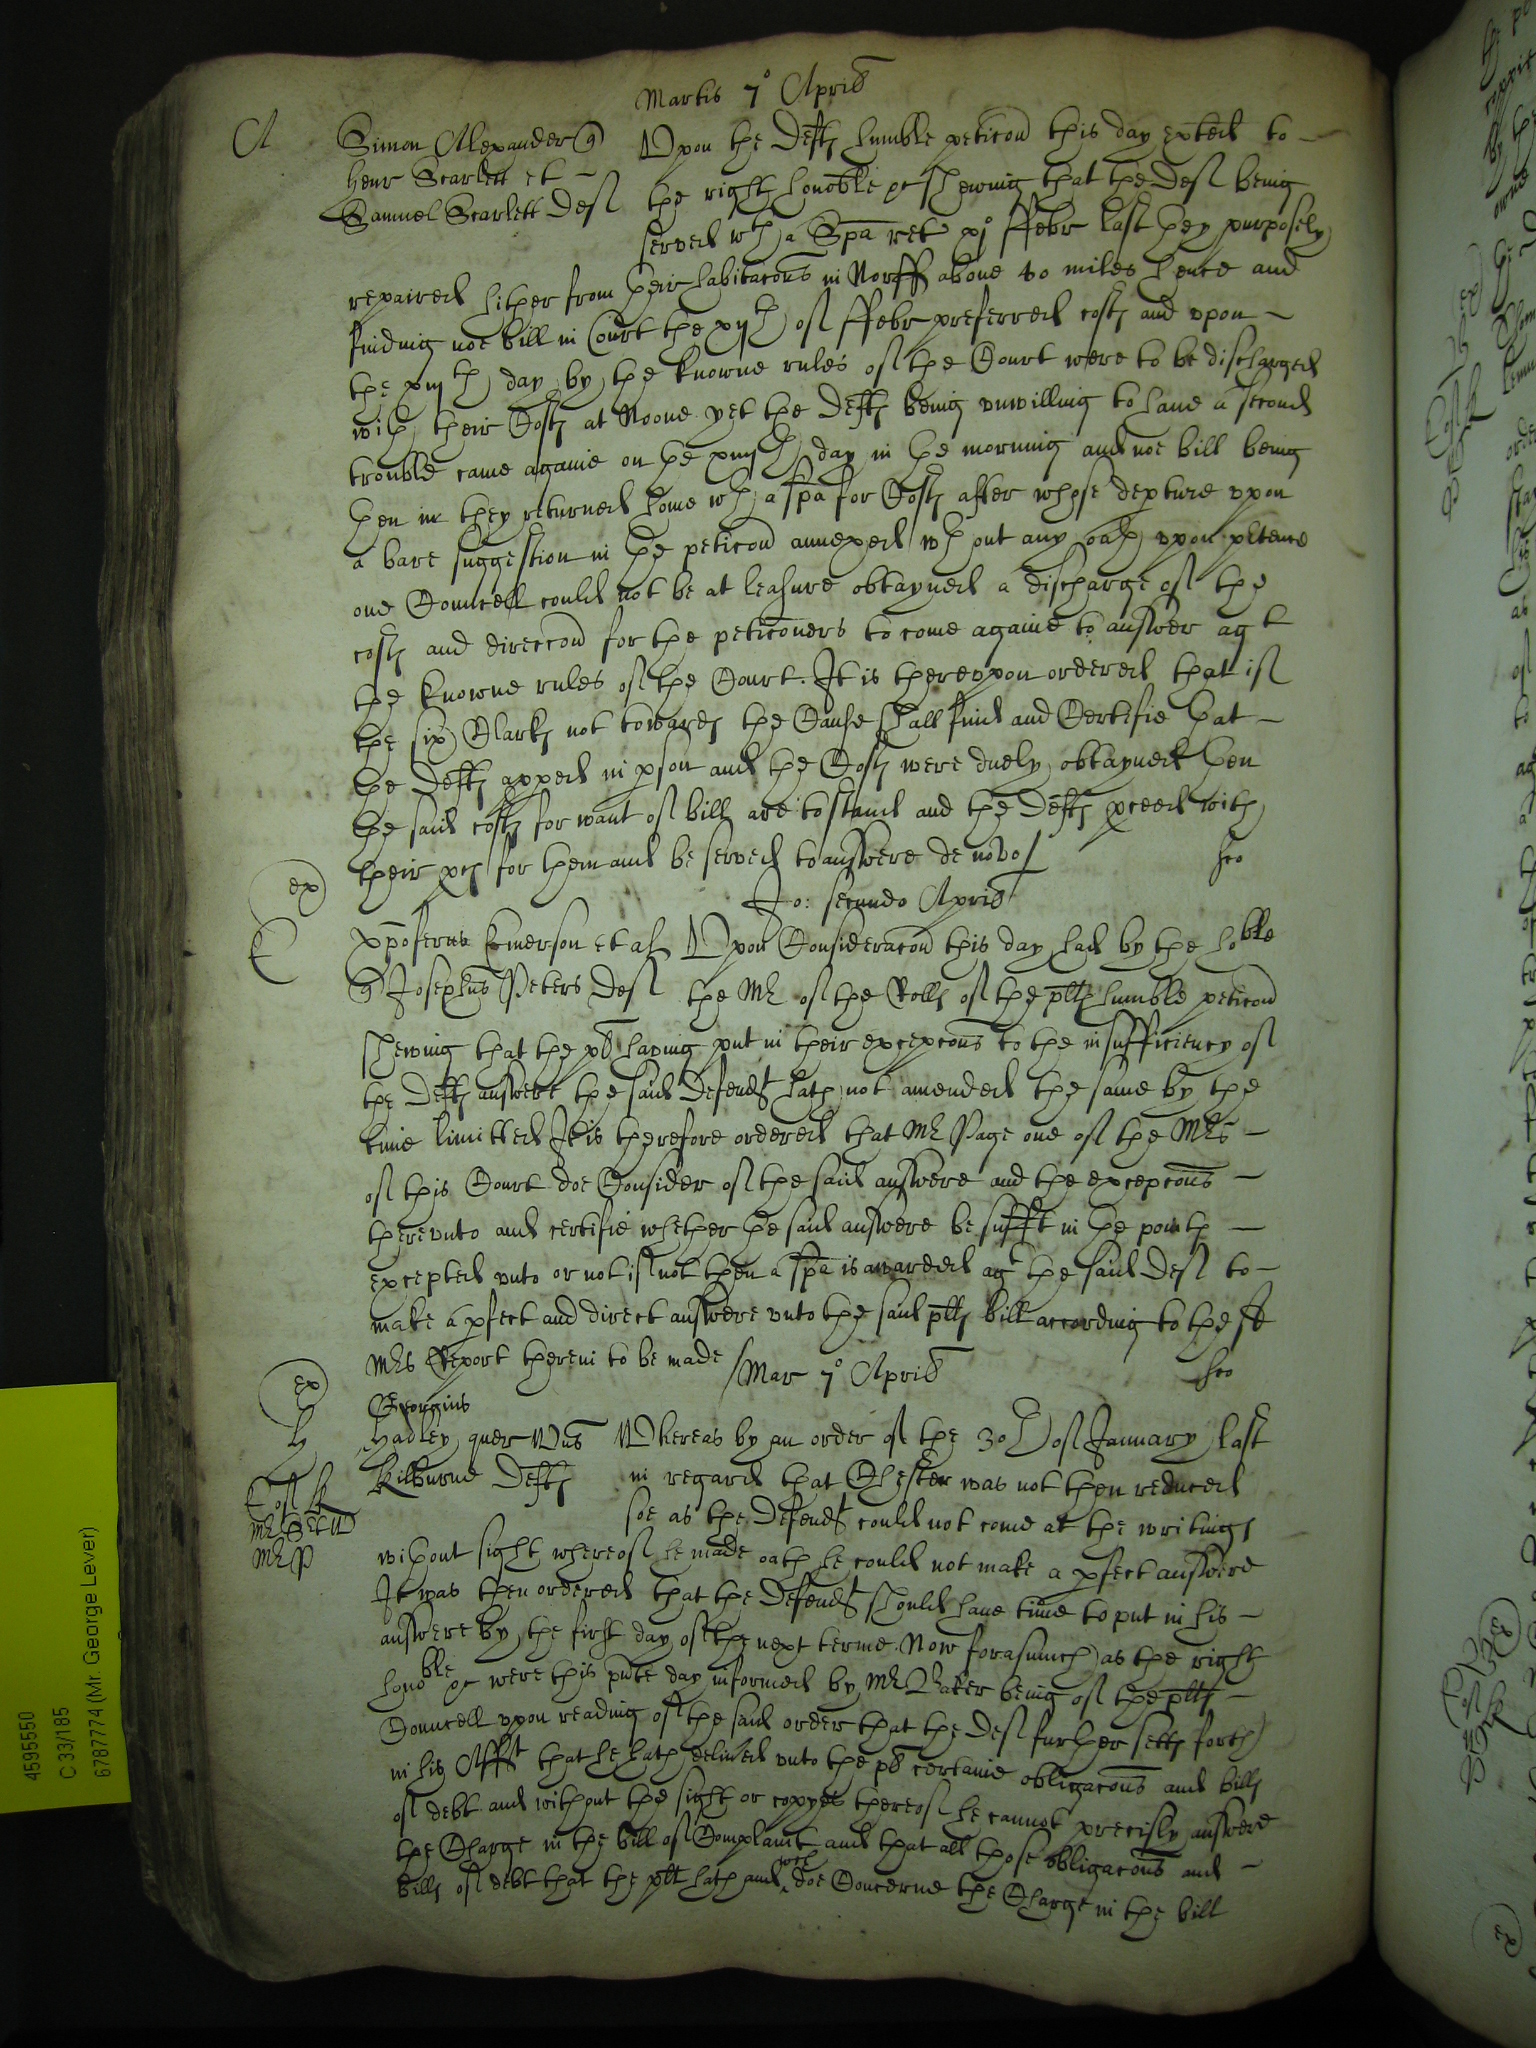 Martis 7° Aprilis
A
Simon Alexander q
Henr Scarlett et
Samuel Scarlett Def
Upon the Defts humble peticon this day exted to
the right honoble &c shewing that the Def being
served wth a Spa ret xj° ffebr last they purposely
repaired hither from their habitacons in Norff above 80 miles hence and
finding noe bill in Court the xijth of ffebr preferred costs and upon
the xiijth day by the knowne rules of the Court were to be discharged
with their Costs at Noone yet the Defts being unwilling to have a second
trouble came againe on the xiiijth day in the morning and noe bill being
then in they returned home wth a spa for Costs after whose depture upon
a bare suggestion in the peticon annexed wthout any oath upon ptence
one Councell could not be at leasure obtayned a discharge of the
costs and direccon for the peticoners to come againe to answer agt
the knowne rules of the Court. It is thereupon ordered that if
the six Clarks not towards the Cause shall find and Certifie that
the Defts appeed in pson and the Costs were duely obtayned then
the said costs for want of bill are to stand and the Defts pceed with
their pces for them and be served to answere de novo/
ex
Jo: secundo Aprilis
E
Xpoferus Emerson et al
q Josephus Peters Def
Upon Consideracon this day had by the hoble
the Mr of the Rolls of the plts humble peticon
shewing that the pl having put in their excepcons to the insufficiency of
the Defts answere the said Defendt hath not amended the same by the
time limitted It is therefore ordered that Mr Page one of the Mrs
of this Court doe Consider of the said answere and the excepcons
thereunto and certifie whether the said answere be sufft in the points
excepted unto or not if not then a spa is awarded agt the said Def to
make a pfect and direct answere unto the said plts bill according to the sd
Mrs Report therein to be made / Mar 7° Aprilis
ex
H
Georgius
Hadley quer Uus
Kilburne Defts
Whereas by an order of the 30th of January last
in regard that Chester was not then reduced
soe as the Defendt could not come at the writings
without sight whereof he made oath he could not make a pfect answere
It was then ordered that the Defendt should have time to put in his
answere by the first day of the next terme. Now forasmuch as the right
honoble &c were this pnte day informed by Mr Baker being of the plts
Councell upon reading of the said order that the Def further setts forth
in his Afft that he hath delivied unto the pl certaine obligacons and bills
of debt and without the sight or copyes thereof he cannot precisly answere
the Charge in the bill of Complaint and that all those obligacons and
bills of debt that the plt hath and wch doe Concerne the Charge in the bill
4595550
C 33/185
6787774 (Mr. George Lever)